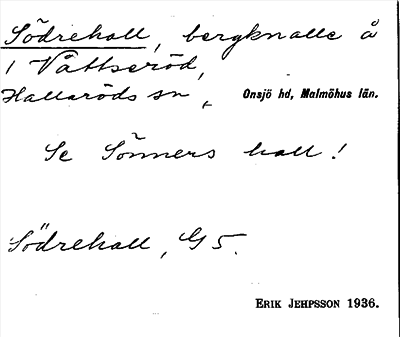 Södrehall, bergknalle å
1 Våttseröd,
Hallaröds sn, Onsjö hd, Malmöhus län.
Se Sönners hall!
Södrehall, G 5.
ERIK JEHPSSON 1936.